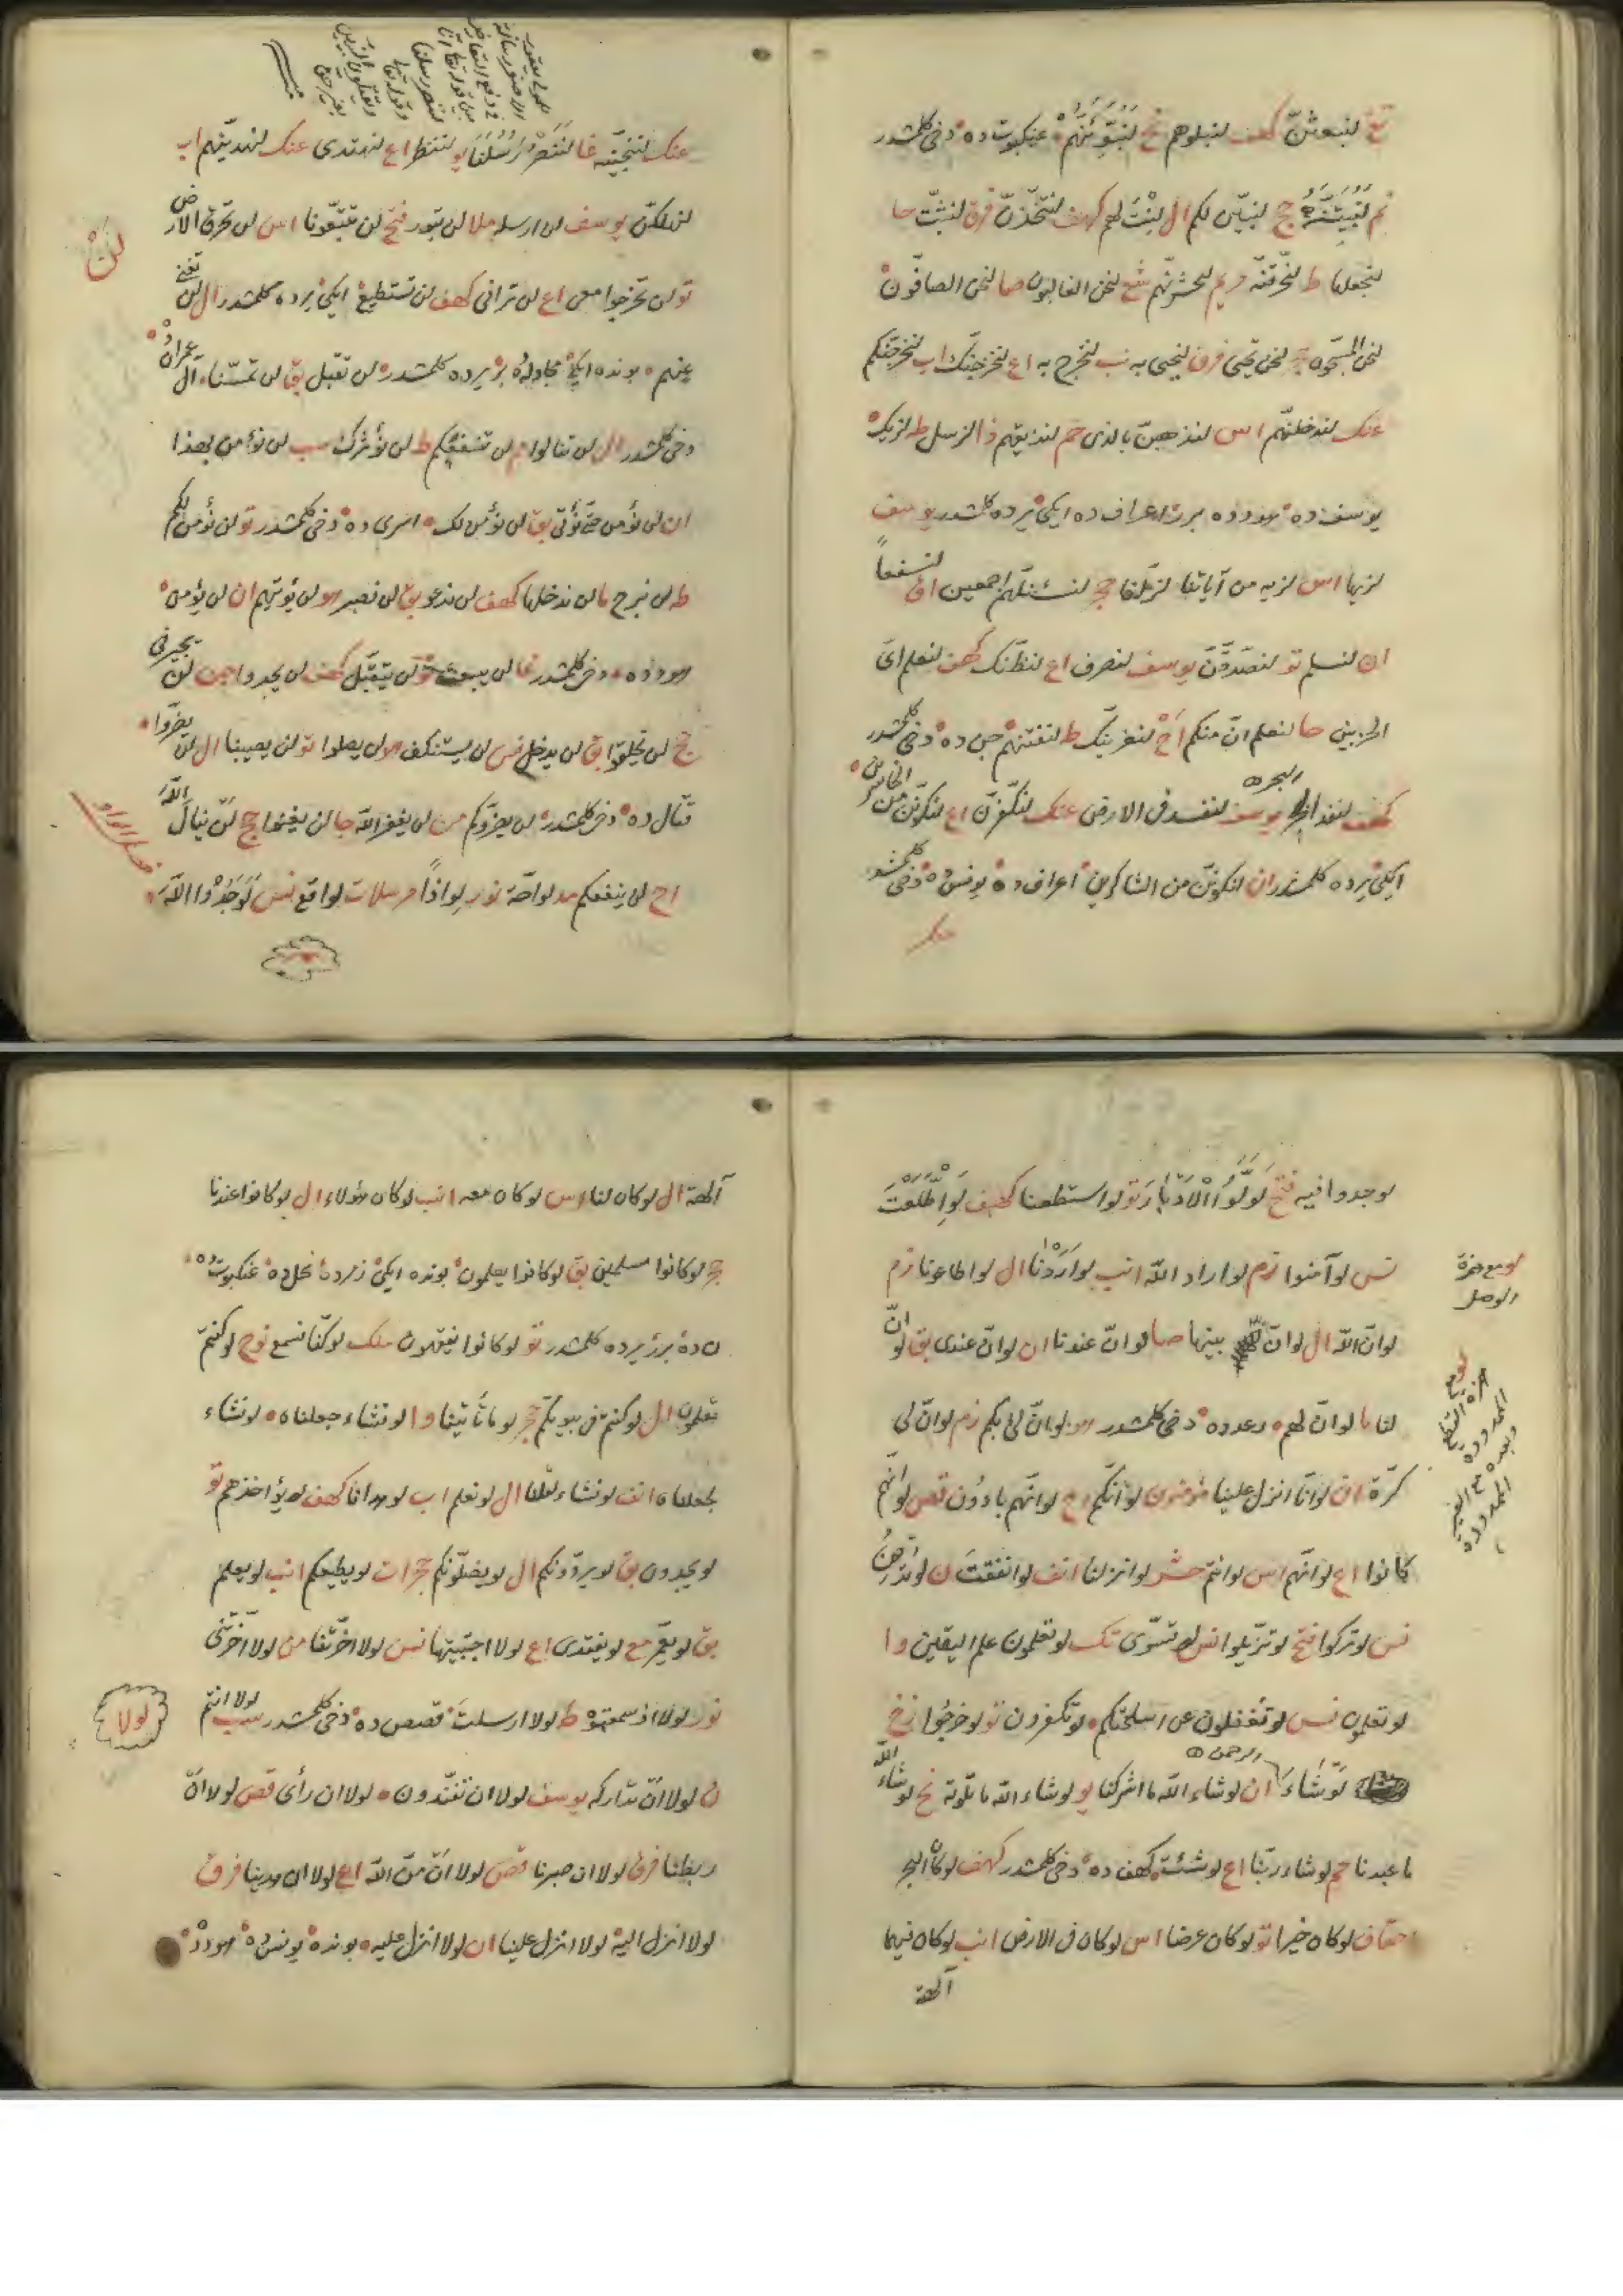 تغ لنبعثنّ كهف لنبلوهم نح لنبوّئنّهم عنكبوت ده دخى كلمشدر
لنبيّتنّه حج لنبيّن لكم ال لنت لهم كهف لنتّخذنّ فرق لنثبّت حا
لنجعلها ط لنحرّقنّه مريم لنحشرنّهم شع لنحن الغالبون صا لنحن الصافّون
لنحن المسبّحون حجر لنحن نحيى فرق لنحيى به نب لنخرج به اع لنخرجنّك اب لنخرجنّكم
عنك لندخلنّهم اس لنذهبنّ بالذى حم لنذيقهم ذا لنرسل ط لنريك
يوسف ده هودده برر اعراف ده ايكى يرده كلمشدر يوسف
لنريها اس لنريه من آياتنا لنزّلنا حج لنسئلنّهم اجمعين اق لنسفعاً
ان لنسلم تو لنصّدّقنّ يوسف لنصرف اع لنظنّك كهف لنعلم اىّ
الحزبين حا لنعلم انّ منكم اح لنغرينّك ط لنفتنهم جن ده دخى كلمشدر
كهف لنفد البحر يوسف لنفسد فى الارض عنك لنكفّرنّ اع لنكوننّ من الخاسرين
ايكى يرده كلمشدر ان لنكوننّ من الشاكرين اعراف ده يونس ده دخى كلمشدر
عنك
عنك لننجّينّه غا لننصر رسلنا يو لننظر اع لنهتدى عنك لنهدينّهم اب
لنهلكنّ يوسف لن ارسله ملا لن تبور فتح لن تتّبعونا اس لن تخرق الارض
تو لن تخرجوا معى اع لن ترانى كهف لن تستطيع ايكى يرده كلمشدر ال لن تغنى
عنهم بونده ايكى مجادله برّ يرده كلمشدر لن تقبل بق لن تمسّنا آل عمران
دخى كلمشدر ال لن تنالوا لن تنفعكم ط لن نؤثرك سب لن نؤمن بهذا
ان لن نؤمن حتى نؤتى بق لن نؤمن لك اسرى ده دخى كلمشدر تو لن نؤمن لكم
ط لن نبرح ما لن ندخلها كهف لن ندعو بق لن نصبر هو لن يؤتيهم ان لن يؤمن
هودده دخى كلمشدر غا لن يبعث تو لن يتقبّل كهف لن يجدوا جن لن يجيرنى
حج لن يخلقوا بق لن يدخل نس لن يستنكف هو لن يصلوا تو لن يصيبنا ال لن يضرّوا
قتال ده دخى كلمشدر لن يضرّوكم من لن يغفر الله جا لن يغنوا حج لن ينال الله
اح لن ينفعكم مد لوّاحة نور لواذاً مرسلات لواقع نس لوجدوا الله
لن
فصل الواو
لوجدوا فيه فتح لولّوا الادبار تو لو استطعنا كهف لو اطّلعت
نس لو آمنوا زم لو اراد الله انب لو اردنا ال لو اطاعونا زم
لو انّ الله ال لو انّ بينها صا لو انّ عندنا ان لو انّ عندى بق لو انّ
لنا ما لو انّ لهم رعدده دخى كلمشدر هو لو انّ لى بكم زم لو انّ لى
كرّة ان لو انّا انزل علينا لو انّكم اح لو انّهم بادون قص لو انّهم
كانوا اع لو انّهم اس لو انتم حش لو انزلنا انف لو انفقت ن لو تدهن
نس لو تركوا فتح لو تزيّلوا نس لو تسوّى تك لو تعلمون علم اليقين وا
لو تعلمون نس لو تغفلون عن اسلحتكم لو تكفرون تو لو خرجوا زخ
لو نشاء الرحمن ان لو شاء الله ما اشركنا يو لو شاء الله ما تلوته نح لو شاء الله
ما عبدنا حم لو شاء ربّنا اع لو شئت كهف ده دخى كلمشدر كهف لو كان البحر
احقاف لو كان خيرا تو لو كان عرضا اس لو كان فى الارض انب لو كان فيهما
آلهة
لو مع همزة
الوصل
آلهة ال لو كان لنا اس لو كان معه انب لو كان هؤلاء ال لو كانوا عندنا
حجر لو كانوا مسلمين بق لو كانوا يعلمون بونده ايكى زمرده نحل ده عنكبوت ده
ن ده برر يرده كلمشدر تو لو كانوا يفقهون ملك لو كنّا نسمع نوح لو كنتم
تعلمون ال لو كنتم فى بيوتكم حجر لو ما تأتينا وا لو نشاء جعلناه لو نشاء
لجعلناه انف لو نشاء لقلنا ال لو نعلم اب لو هدانا كهف لو يؤاخذهم تو
لو يجدون بق لو يردّونكم ال لو يضلّونكم حجرات لو يطيعكم انب لو يعلم
بق لو يعمّر مع لو يفتدى اع لولا اجتبيتها نس لولا اخّرتنا من لولا اخّرتنى
نور لولا اذ سمعتموه ط لولا ارسلت قصص ده دخى كلمشدر سب لولا انتم
ن لولا ان تداركه يوسف لولا ان تفنّدون لولا ان رأى قص لولا ان
ربطنا فرق لولا ان صبرنا قص لولا ان منّ الله اع لولا ان هدينا فرق
لولا انزل اليه لولا انزل علينا ان لولا انزل عليه بونده يونس ده هودده
لولا